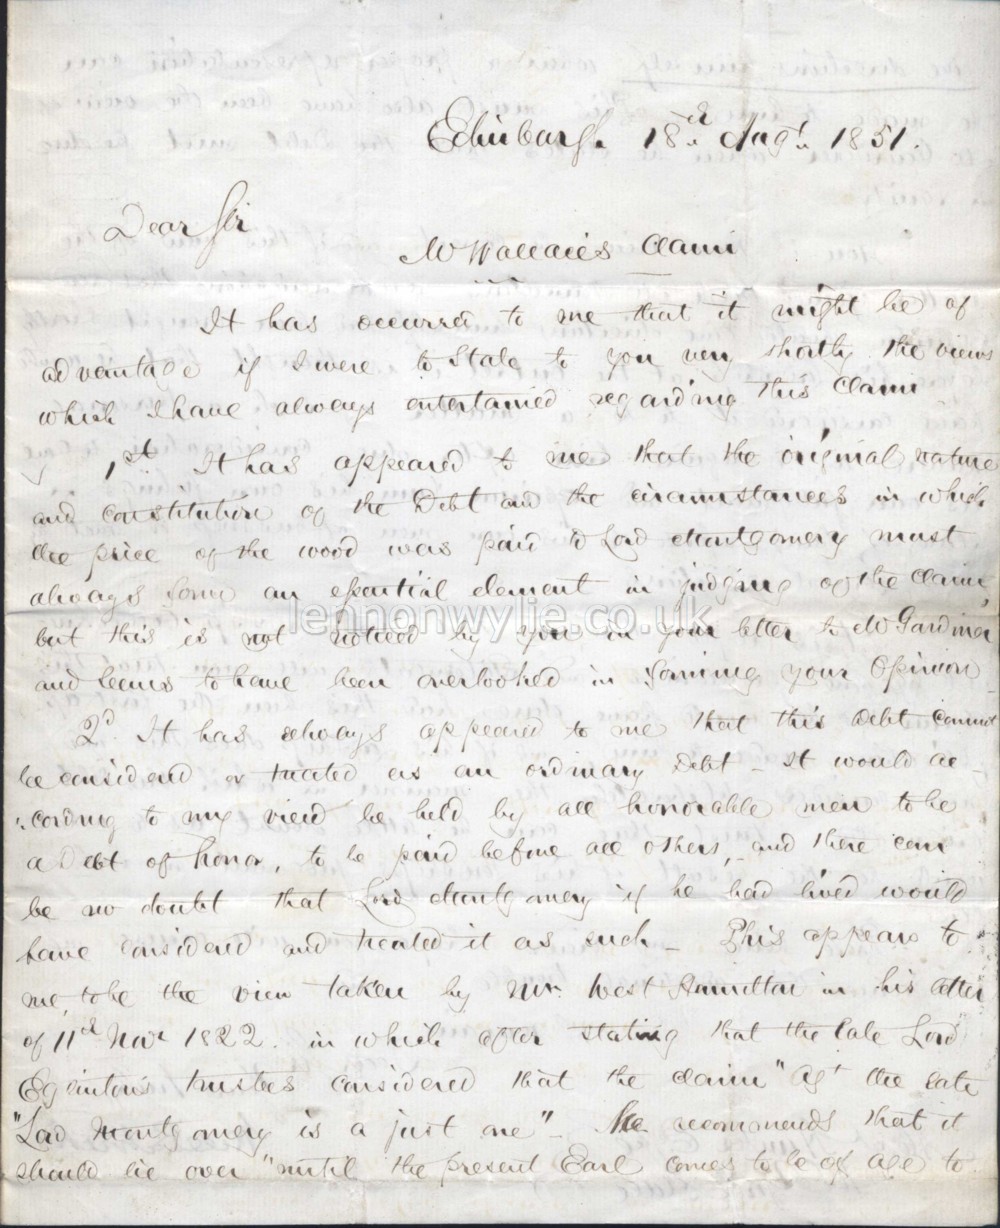 Edinburgh 18th Augt. 1851.
Dear Sir
Mr Wallace's Claim
It has occurred to me that it might be of
advantage if I were to State to you very shortly the views
which I have always entertained regarding this Claim
1st. It has appeared to me that the original nature
and constitution of the Debt and the circumstances in which
the price of the wood was paid to Lord Montgomery must
always form an essential element in judging of the Claim,
but this is not noticed by you in your letter to Mr Gardiner
lennonwylie.co.uk
and seems to have been overlooked in forming your Opinion
2d. It has always appeared to me that this Debt cannot
be considered or treated as an ordinary Debt - It would ac-
cording to my view be held by all honorable men to be
a Debt of honor, to be paid before all others, and there can
be no doubt that Lord Montgomery if he had lived would
have considered and treated it as such - This appears to
me, to be the view taken by Mr. West Hamilton in his letter
of 11th Novr 1822. in which after stating that the late Lord
Eglinton's trustees considered that the claim "Agt the late
"Lord Montgomery is a just one" - he recommends that it
should lie over "until the present Earl comes to be of age to